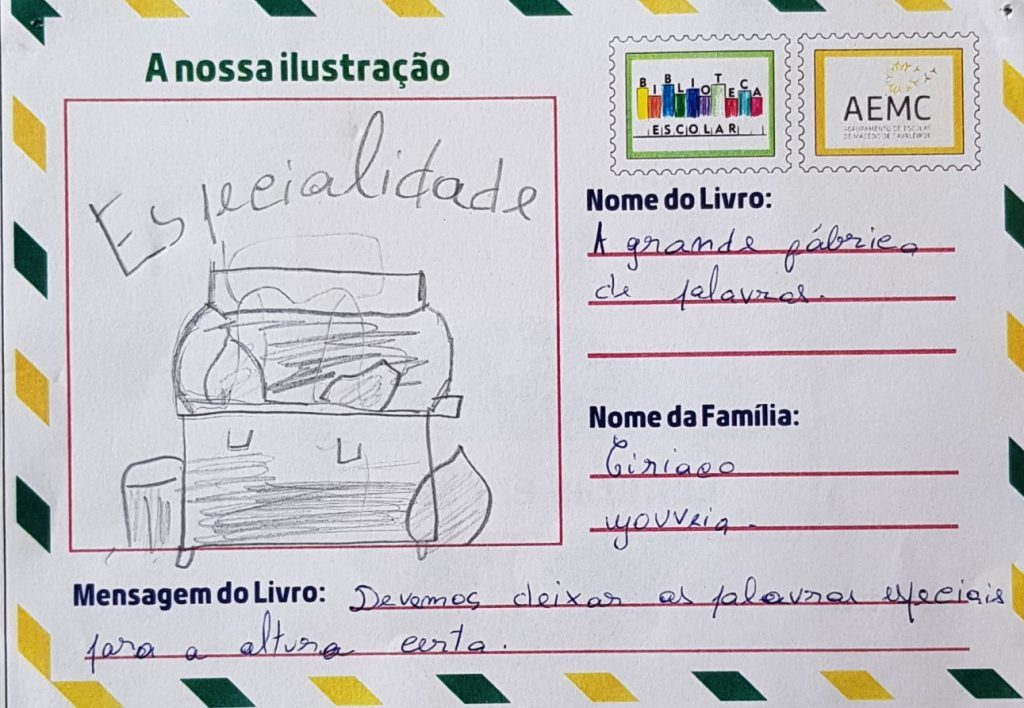 A nossa ilustração
Especialidade
BIBLIOTECA
ESCOLAR
AEMC
AGRUPAMENTO DE ESCOLAS
DE MACEDO DE CAVALEIROS
Nome do Livro:
A grande fábrica
de palavras.
Nome da Família:
Ciriaco
Mensagem do Livro: Devemos deixar as palavras especiais
para a altura certa.